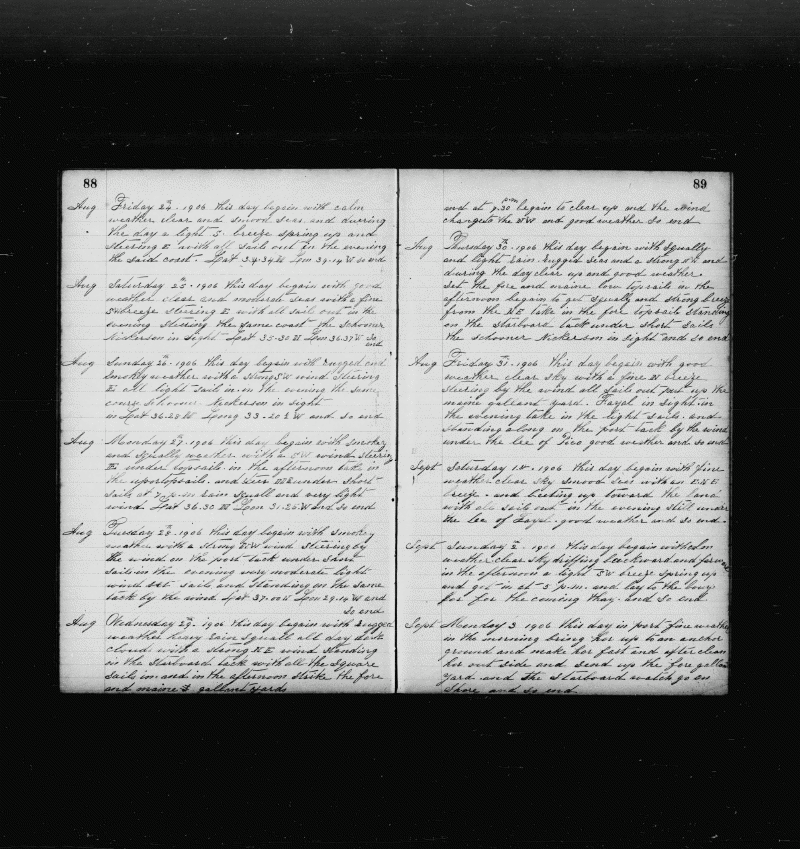 88
Aug Friday 24th. 1906 this day began with calm
weather clear and smood seas and duering
the day a light S. breeze spring up and
steering E with all sails out in the evening
the said coast. Lat 34.34 N Lon 39.14 W so end
Aug Saturday 25. 1906 this day began with good
weather clear and moderate seas with a fine
SW breeze steering E with all sail out in the
evening steering the same coast the schooner
Nickerson in sight Lat 35-30 N Lon 36.37 W so
end
Aug Sunday 26. 1906 this day began with rugged and
smokey weather with a strong SW wind steering
E all light sail in on the evening the same
course schooner Nickerson in sight
in Lat 36.28 W Long 33-20 W and so end
Aug Monday 27. 1906 this day began with smokey
and squally weather with a SW wind steering
E under topsails in the afternoon take in
the upertopsails and under short
sails at 7 p.m. rain squall and very light
wind Lat 36.30 N Lon 31-25 W and so end
Aug Tuesday 28. 1906 this day began with smokey
weather with a strong wind steering by
the wind on the port tack under short
sails in the evening very moderate light
wind set sails and standing on the same
tack by the wind Lat 37.00 N Lon 29.14 W and
so end
Aug Wednesday 29. 1906 this day began with rugged
weather heavy rain squall all day dark
cloud with a strong NE wind standing
on the starboard tack with all the square
sails in and in the afternoon strike the fore
and maine gallant yards
89
and at 7.30 pm began to clear up and the wind
change to the NW and good weather so end
Aug Thursday 30. 1906 this day began with squally
and light rain rugged seas and a strong and
during the day clear up and good weather
set the fore and maine low topsails in the
afternoon began to get squaly and strong breeze
from the NE take in the fore topsail standing
on the starboard tack under short sails
the schooner Nickerson in sight and so end
Aug Friday 31. 1906 this day began with good
weather clear sky with a fine N breeze
steering by the wind all sail out put up the
maine gallant yard. Fayal in sight in
the evening take in the light sails and
standing along on the port tack by the wind
under the lee of Pico good weather and so end
Sept Saturday 1st. 1906 this day began with fine
weather clear sky smood seas with an ENE
breeze and beeting up toward the land
with all sails out in the evening still under
the lee of Fayal. good weather and so end.
Sept Sunday 2. 1906 this day began with calm
weather clear sky drifting backward and forward
in the afternoon a light SW breeze spring up
and got in at 3 p.m. and lay to the bouy
for for the coming thay. and so end
Sept Monday 3 1906 this day in port fine weather
in the morning bring her up to an anchor
ground and make her fast and after clean
her out side and send up the fore gallan
yard and the starboard watch go on
shore and so end.